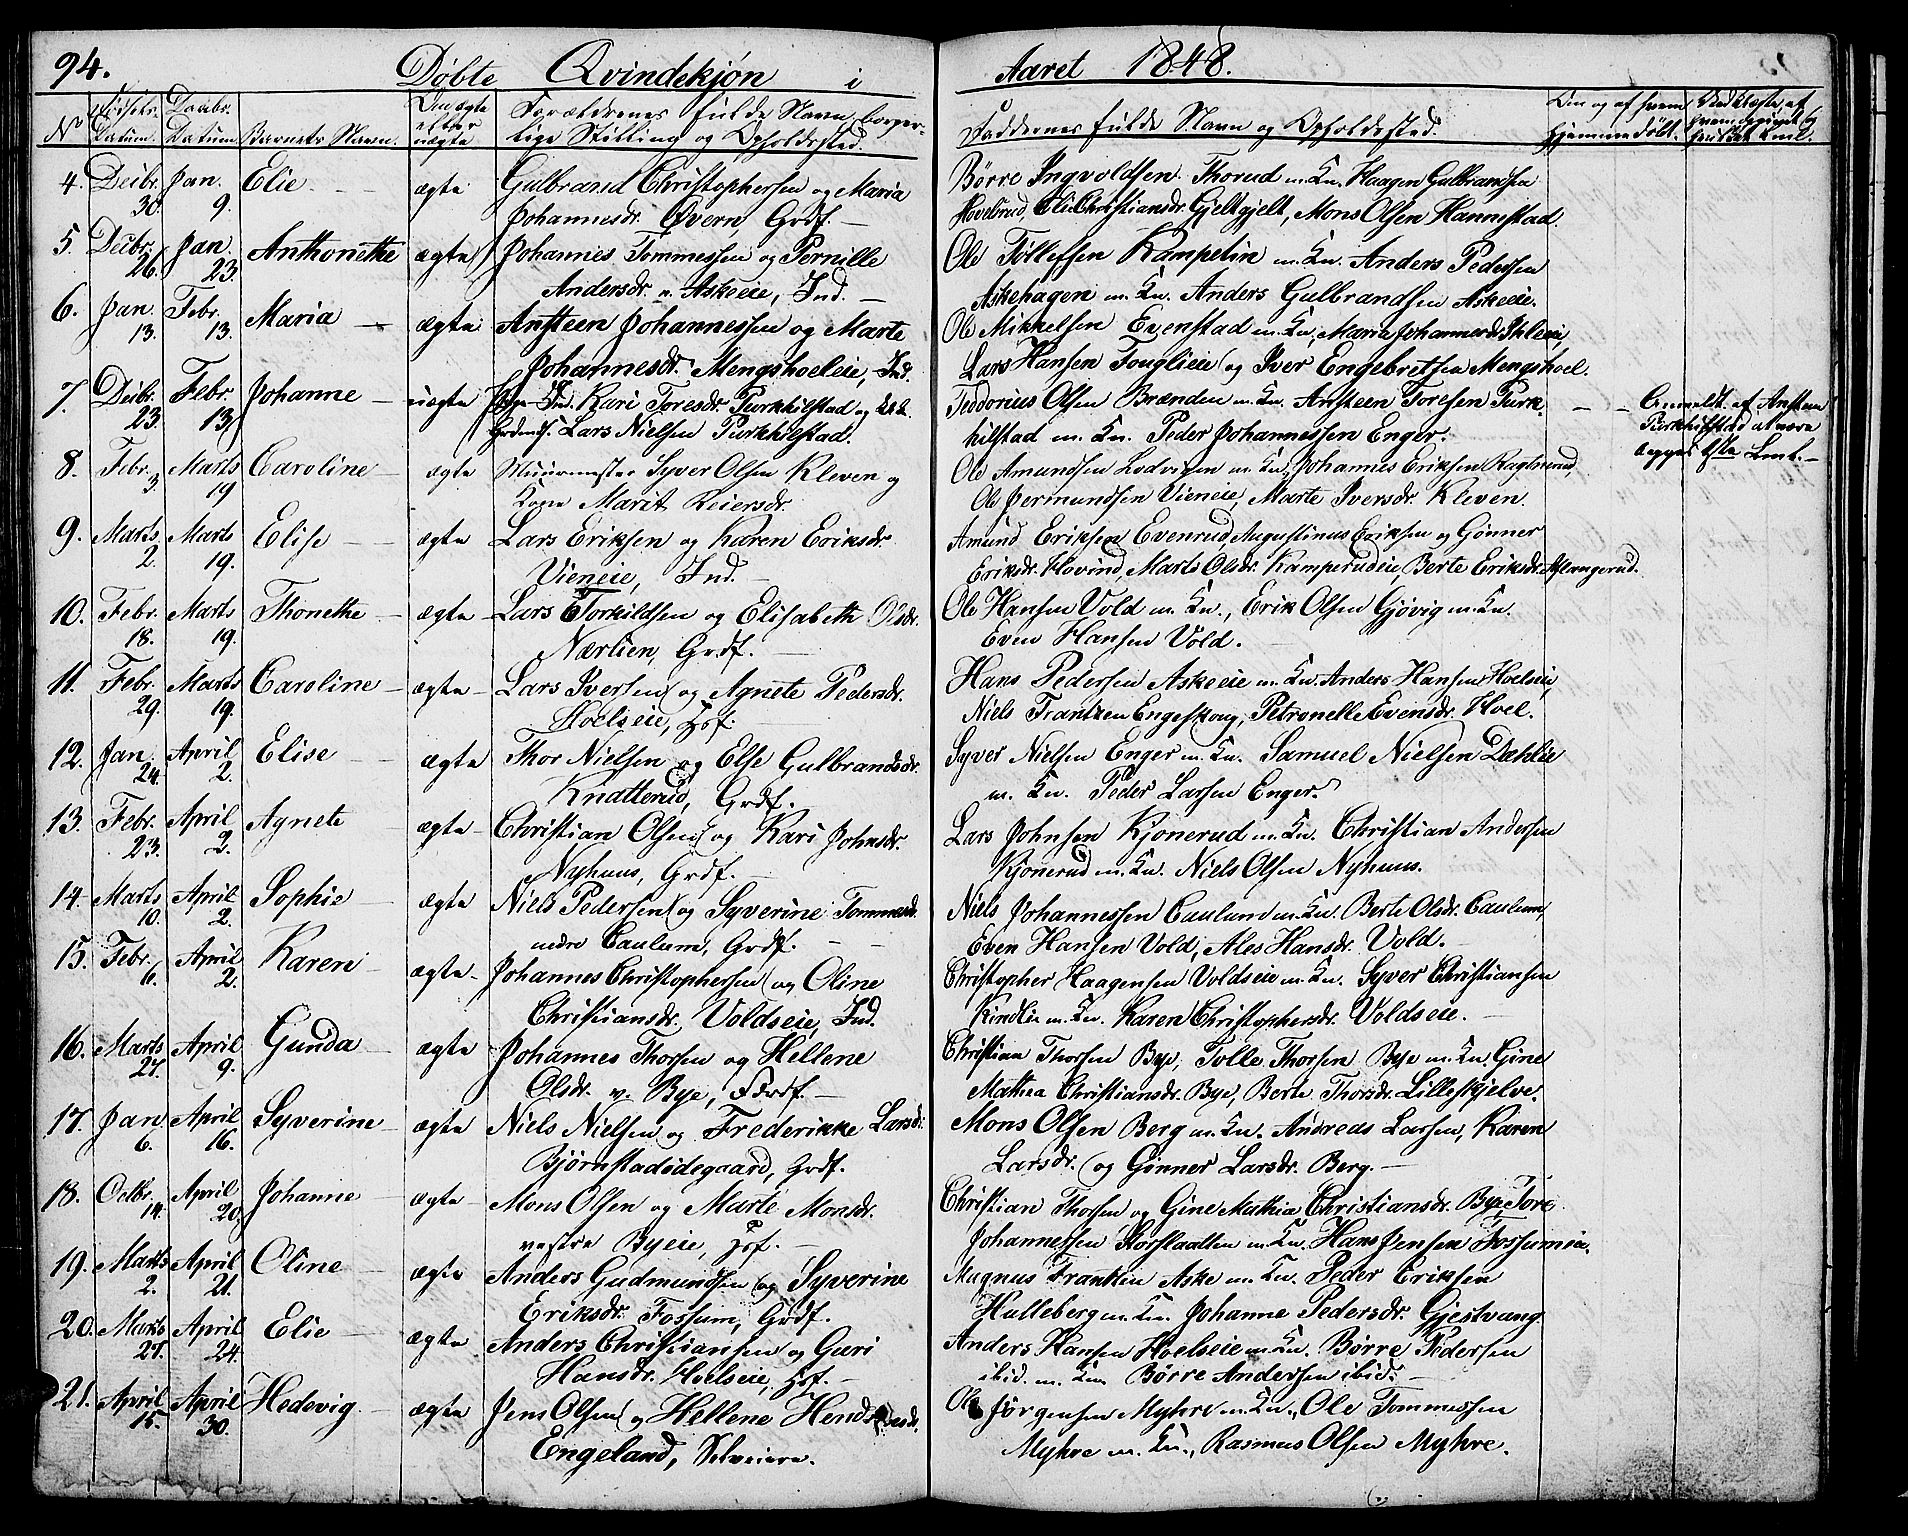 94. Døbte Qvindekjøn i Aaret 1848.
No Fødsels-Datum. Daabs-Datum. Barnets Navn. Om ægte eller uægte Forældrenes fulde Navn, borgerlige Stilling og Opholdssted. Faddernes fulde Navn og Opholdssted. Om og af hvem hjemmedøbt.
4. Decbr. 30. Jan. 9. Elie ægte Gulbrand Christophersen og Maria
Johannesdr. Øvern, Grdf.
Børre Ingvoldsen Thorud m. Kn. Haagen Gulbrandsen
Hovelsrud, Eli Christiansdr. Gjeltgjelt, Mons Olsen Hannestad.
5. Decbr. 26. Jan. 23. Anthonethe ægte Johannes Tommessen og Pernille
Andersdr. v. Askeeie, Ind.
Ole Tollefsen Kampetin m. Kn. Anders Pedersen
Askehagen m. Kn. Anders Gulbrandsen Askeeie.
6. Jan. 13. Febr. 13. Maria ægte Ansteen Johannessen og Marte
Johannesdr. Mengshoeleie, Ind.
Ole Mikkelsen Evenstad m. Kn. Maria Johannesdr. Ihleeie,
Lars Hansen Fouglieie og Iver Engebretsen Mengshoel.
7. Decbr. 23. Febr. 13. Johanne uægte Pige Ind. Kari Toresdr. Purkhilstad og
Lars Nielsen Purkhilstad.
Teodorius Olsen Brænden m. Kn. Ansteen Toresen Purk-
hilstad m. Kn. Peder Johannessen Enger.
Anmeldt af Ansteen
Purkhilstad at være
begges 1ste Leierm.
8. Febr. 3. Marts 19. Caroline ægte Muurmester Syver Olsen Kleven og
Kone Marit Reiersdr.
Ole Amundsen Lodvigen m. Kn. Johannes Eriksen Ragtnerud,
Ole Jermundsen Vieneie, Marte Iversdr. Kleven.
9. Marts 2. Marts 19. Elise ægte Lars Eriksen og Karen Eriksdr.
Vieneie, Ind.
Amund Eriksen Evenrud, Augustinus Eriksen og Gønner
Eriksdr. Hovind, Marte Olsdr. Kamperudeie, Berte Eriksdr. Aslangerud.
10. Febr. 18. Marts 19. Thonethe ægte Lars Torkildsen og Elisabeth Olsdr.
Nærlien, Grdf.
Ole Hansen Vold m. Kn., Erik Olsen Gjøvig m. Kn.
Even Hansen Vold.
11. Febr. 29. Marts 19. Caroline ægte Lars Iversen og Agnete Pedersdr.
Hoelseie, Hsf.
Hans Pedersen Askeeie m. Kn. Anders Hansen Hoelseie,
Niels Frantzen Engeskoug, Petronelle Evensdr. Hoel.
12. Jan. 24. April 2. Elise ægte Thor Nielsen og Else Gulbrandsdr.
Knatterud, Grdf.
Syver Nielsen Enger m. Kn. Samuel Nielsen Dæhlie
m. Kn. Peder Larsen Enger.
13. Febr. 23. April 2. Agnete ægte Christian Olsen og Kari Johnsdr.
Nyhuus, Grdf.
Lars Johnsen Kjonerud m. Kn. Christian Andersen
Kjonerud m. Kn. Niels Olsen Nyhuus.
14. Marts 10. April 2. Sophie ægte Niels Pedersen og Syverine Tommesdr.
nedre Caulum, Grdf.
Niels Johannessen Caulum m. Kn. Berte Olsdr. Caulum,
Even Hansen Vold, Ales Hansdr. Vold.
15. Febr. 6. April 2. Karen ægte Johannes Christophersen og Oline
Christiansdr. Voldseie, Ind.
Christopher Haagensen Voldseie m. Kn. Syver Christiansen
Kindlie m. Kn. Karen Christophersdr. Voldseie.
16. Marts 27. April 9. Gunda ægte Johannes Thorsen og Hellene
Olsdr. v. Bye, Grdf.
Christian Thorsen Bye, Tolle Thorsen Bye m. Kn. Gine
Mathea Christiansdr. Bye, Berte Thorsdr. Lilleskjelve.
17. Jan. 6. April 16. Syverine ægte Niels Nielsen og Frederikke Larsdr.
Bjørnstadødegaard, Grdf.
Mons Olsen Berg m. Kn. Andreas Larsen, Karen
Larsdr. og Gønner Larsdr. Berg.
18. Octbr. 14. April 20. Johanne ægte Mons Olsen og Marte Monsdr.
vestre Byeeie, Hsf.
Christian Thorsen og Gine Mathia Christiansdr. Bye, Tore
Johannessen Storslaatten m. Kn. Hans Jensen Fossumeie.
19. Marts 2. April 21. Oline ægte Anders Gudmundsen og Syverine
Eriksdr. Fossum, Grdf.
Magnus Frantzen Aske m. Kn. Peder Eriksen
Hulleberg m. Kn. Johanne Pedersdr. Gjestvang.
20. Marts 27. April 24. Elie ægte Anders Christiansen og Guri
Hansdr. Hoelseie, Hsf.
Anders Hansen Hoelseie m. Kn. Børre Pedersen
ibid. m. Kn. Børre Andersen ibid.
21. April 15. April 30. Hedevig ægte Jens Olsen og Hellene
Engeland, Selveiere.
Ole Jørgensen Myhre m. Kn., Ole Tommessen
Myhre m. Kn., Rasmus Olsen Myhre.